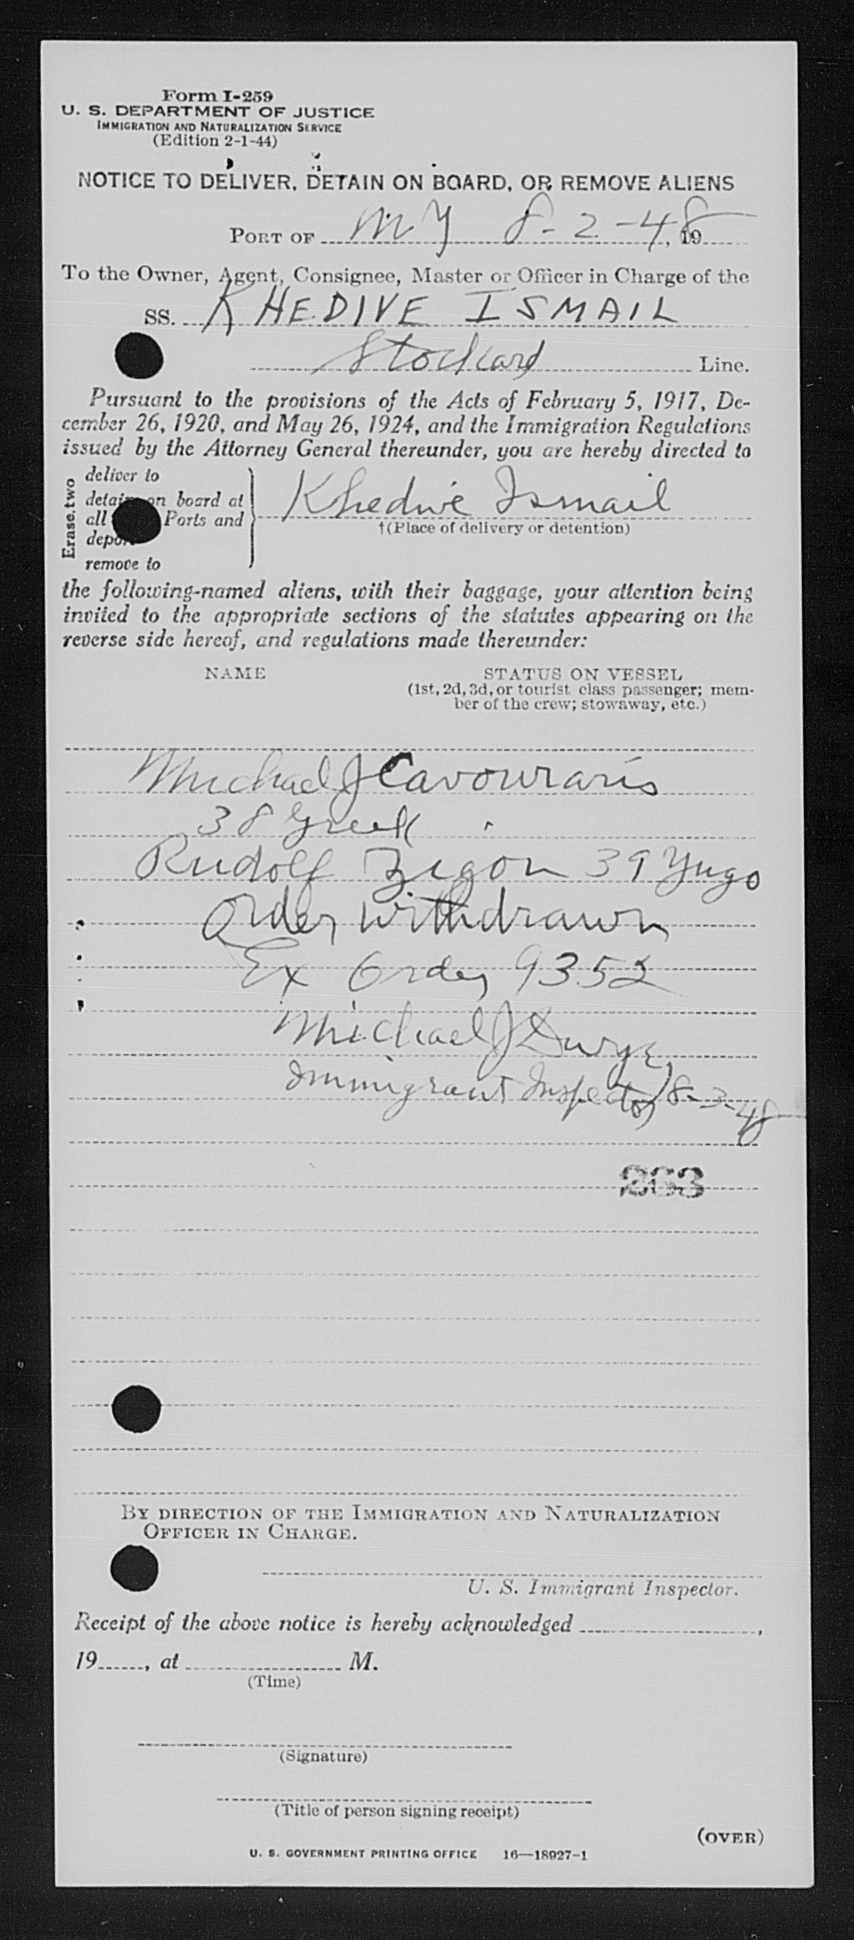 Form I-259
U. S. DEPARTMENT OF JUSTICE
IMMIGRATION AND NATURALIZATION SERVICE
(Edition 2-1-44)
NOTICE TO DELIVER, DETAIN ON BOARD, OR REMOVE ALIENS
PORT OF NY 8-2-48, 19
To the Owner, Agent, Consignee, Master or Officer in Charge of the
SS. KHEDIVE ISMAIL
Stockard Line.
Pursuant to the provisions of the Acts of February 5, 1917, De-
cember 26, 1920, and May 26, 1924, and the Immigration Regulations
issued by the Attorney General thereunder, you are hereby directed to
Erase two
deliver to
detain on board at
all Ports and
deport
remove to
Khedive Ismail
†(Place of delivery or detention)
the following-named aliens, with their baggage, your attention being
invited to the appropriate sections of the statutes appearing on the
reverse side hereof, and regulations made thereunder:
NAME STATUS ON VESSEL
(1st, 2d, 3d, or tourist class passenger; mem-
ber of the crew; stowaway, etc.)
Michael J Cavouraris
38 Greek
Rudolf Zigon 39 Yugo
Order withdrawn
Ex Order 9352
Michael J Dwyer
Immigrant Inspector 8-3-48
263
BY DIRECTION OF THE IMMIGRATION AND NATURALIZATION
OFFICER IN CHARGE.
U. S. Immigrant Inspector.
Receipt of the above notice is hereby acknowledged ,
19 , at M.
(Time)
(Signature)
(Title of person signing receipt)
(OVER)
U. S. GOVERNMENT PRINTING OFFICE 16—18927-1